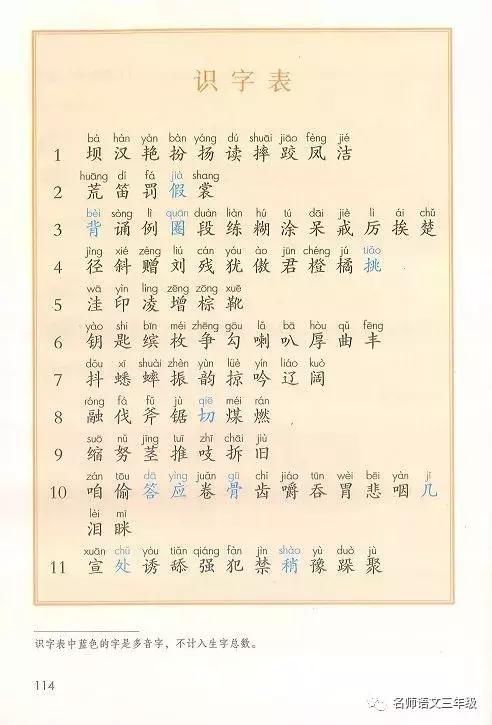 识字表
bà hàn yàn bàn yáng dú shuāi jiāo fèng jié
1 坝 汉 艳 扮 扬 读 摔 跤 凤 洁
huāng dí fá jià shang
2 荒 笛 罚 假 裳
bèi sòng lì quān duàn liàn hú tú dāi jiè lì ái chǔ
3 背 诵 例 圈 段 练 糊 涂 呆 戒 厉 挨 楚
jìng xié zèng liú cán yóu ào jūn chéng jú tiāo
4 径 斜 赠 刘 残 犹 傲 君 橙 橘 挑
wā yìn líng zēng zōng xuē
5 洼 印 凌 增 棕 靴
yào shi bīn méi zhēng gōu lǎ bā hòu qǔ fēng
6 钥 匙 缤 枚 争 勾 喇 叭 厚 曲 丰
dǒu xī shuài zhèn yùn lüè yín liáo kuò
7 抖 蟋 蟀 振 韵 掠 吟 辽 阔
róng fá fǔ jù qiē méi rán
8 融 伐 斧 锯 切 煤 燃
suō nǔ jīng tuī zhī chāi jiù
9 缩 努 茎 推 吱 拆 旧
zán tōu dā yìng juǎn gū chǐ jiáo tūn wèi bēi yàn jī
10 咱 偷 答 应 卷 骨 齿 嚼 吞 胃 悲 咽 几
lèi mī
泪 眯
xuān chǔ yòu tiǎn qiáng fàn jìn shào yù duò jù
11 宣 处 诱 舔 强 犯 禁 稍 豫 跺 聚
识字表中蓝色的字是多音字，不计入生字总数。
114
名师语文三年级